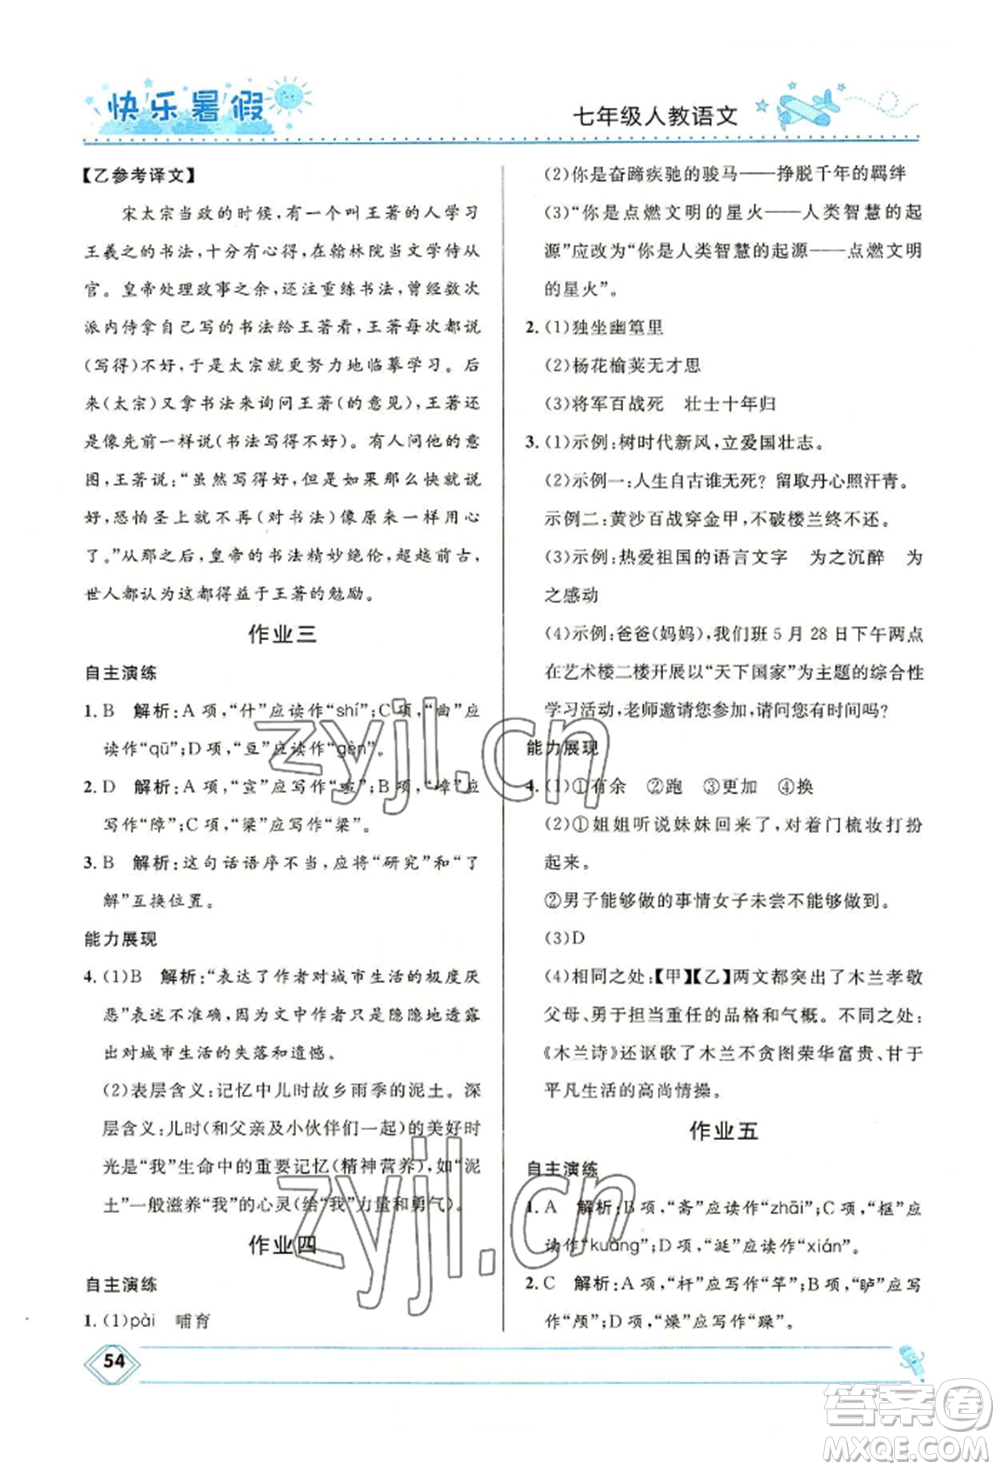 快乐暑假
七年级人教语文
【乙参考译文】
宋太宗当政的时候,有一个叫王著的人学习
王羲之的书法,十分有心得,在翰林院当文学侍从
官。皇帝处理政事之余,还注重练书法,曾经数次
派内侍拿自己写的书法给王著看,王著每次都说
(写得)不好,于是太宗就更努力地临摹学习。后
来(太宗)又拿书法来询问王著(的意见),王著还
是像先前一样说(书法写得不好)。有人问他的意
图,王著说:“书法写得好,但如果立即就对皇上说
好,恐怕圣上就不再(对书法)像原来一样用心
了。”从那之后,皇帝的书法精妙绝伦,超越前古,
世人都认为这都得益于王著的勉励。
作业三
自主演练
1. B 解析:A 项,“什”应读作“shí”;C 项,“曲”应
读作“qū”;D 项,“亘”应读作“gèn”。
2. D 解析:A 项,“宣”应写作“喧”;B 项,“嶂”应
写作“障”;C 项,“梁”应写作“梁”。
3. B 解析:这句话语序不当,应将“研究”和“了
解”互换位置。
能力展现
4. (1)B 解析:“表达了作者对城市生活的极度厌
恶”不准确,因为文中作者只是隐隐地透露出
对城市生活的失落和遗憾。
(2)表层含义:记忆中儿时故乡雨季的泥土。深
层含义:儿时(和父亲及小伙伴们一起)的美好时
光是“我”生命中重要记忆(精神营养),像“泥
土”一般滋养“我”的心灵(给“我”力量和勇气)。
作业四
自主演练
1. (1)pài 哺育
(2)你是奋蹄疾驰的骏马——挣脱千年的羁绊
(3)“你是点燃文明的星火——人类智慧的起
源”应改为“你是人类智慧的起源——点燃文明
的星火”。
2. (1)独坐幽篁里
(2)杨花榆荚无才思
(3)将军百战死 壮士十年归
3. (1)示例:树时代新风,立爱国壮志。
(2)示例一:人生自古谁无死?留取丹心照汗青。
示例二:黄沙百战穿金甲,不破楼兰终不还。
(3)示例:热爱祖国的语言文字 为之沉醉 为
之感动
(4)示例:爸爸(妈妈),我们班 5 月 28 日下午两点
在艺术楼二楼开展以“天下国家”为主题的综合性
学习活动,老师邀请您参加,请问您有时间吗?
能力展现
4. (1)①有余 ②跑 ③更 ④换
(2)①姐姐听说妹妹回来了,对着门梳妆打扮
起来。
②男子能够做的事情女子未尝不能够做。
(3)D
(4)相同之处:【甲】【乙】两文都突出了木兰孝敬
父母、勇于担当重任的品格和气概。不同之处:
《木兰诗》还讴歌了木兰不贪图荣华富贵、甘于
平凡生活的高尚情操。
作业五
自主演练
1. A 解析:B 项,“斋”应读作“zhāi”;C 项,“框”应
读作“kuàng”;D 项,“涎”应读作“xián”。
2. C 解析:A 项,“杆”应写作“竿”;B 项,“胪”应写
作“颅”;D 项,“燥”应写作“躁”。
54
zyjl.cn
zyjl.cn
答案圈
MXQE.COM